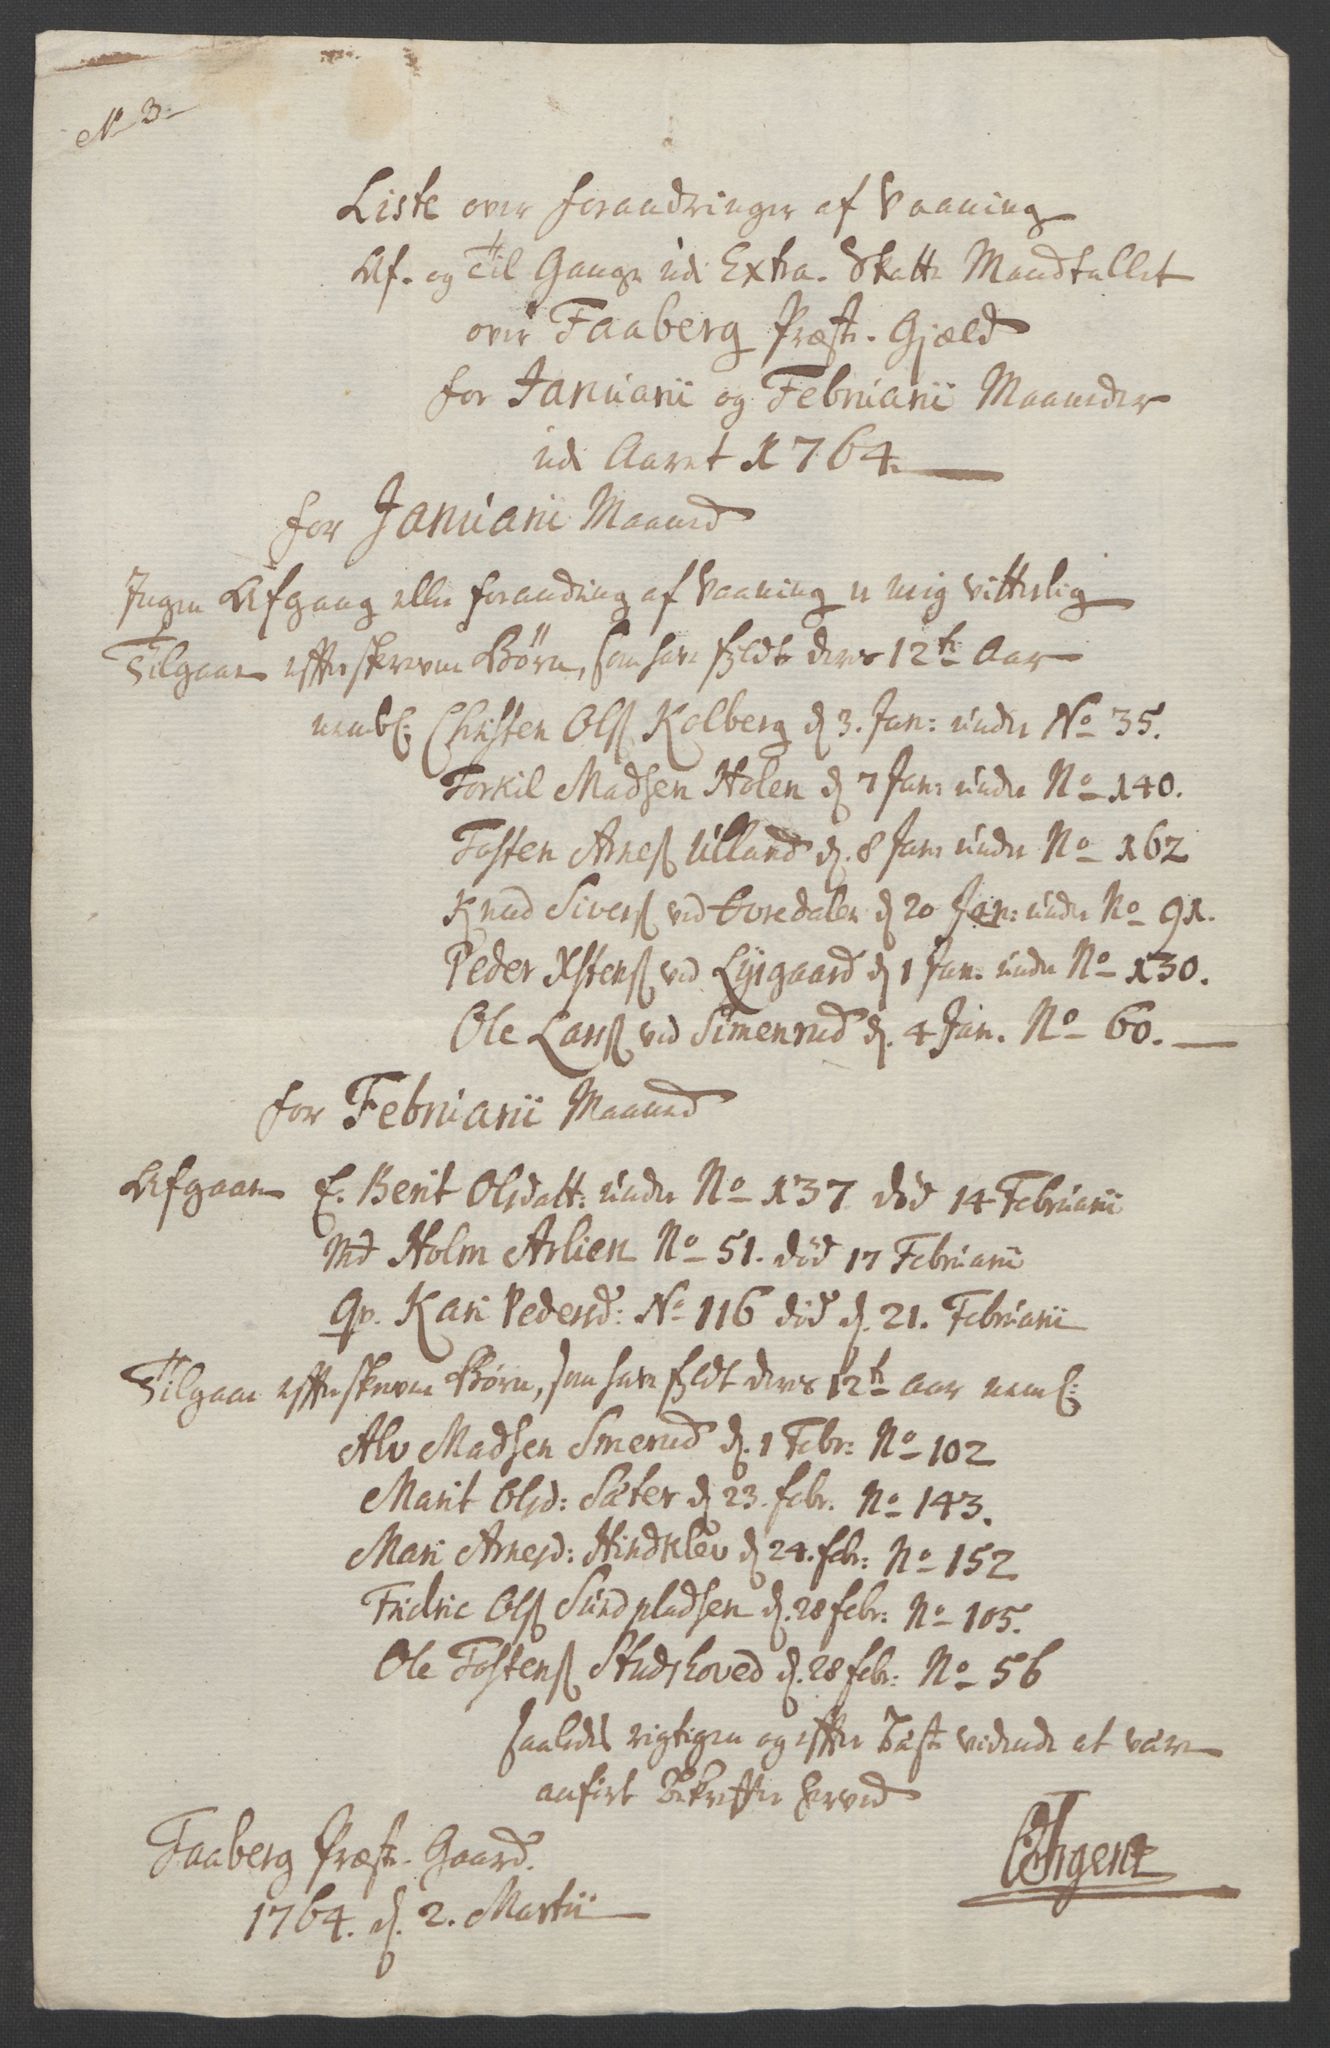 No 3.
Liste over forandringer af Vaaning
Af- og Til Gange udi Extra- Skatte Mandtallet
over Faaberg Præste-Gjeld
for Januarii og Februarii Maaneder
udi Aaret 1764.
for Januarii Maaned
Ingen Afgang eller forandring af Vaaning er mig vitterlig
Tilgaar efterskrevne Børn, som have fyldt deres 12te Aar
neml: Christen Olsß Kolberg d 3. Jan: under No 35.
Torkil Madsen Holen d 7 Jan: under No 140.
Tosten Arnesß Ulland d. 8 Jan: under No 162
Knud Siversß ved Evredalen d 20 Jan: under No 91.
Peder Xstensß ved Lysgaard d 1 Jan: under No 130.
Ole Larsß ved Simenrud d. 4 Jan. No 60.
for Februarii Maaned
Afgaar E. Berit Olsdatt: under No 137 død 14 Februarii
Md Holm Arlien No 51. død 17 Februarii
Qv. Kari Pedersd: No 116 død d. 21. Februarii
Tilgaar efterskrevne Børn, som have fyldt deres 12te Aar neml:
Alv Madsen Smerud d. 1 Febr: No 102
Marit Olsd: Sæter d 23. febr. No 143.
Mari Arnesd: Hindklev d 24. febr: No 152
Fridric Olsß Sundpladsen d. 28 febr: No 105.
Ole Tostensß Studshoved d. 28 febr: No 56
saaledes rigtigen og efter Bæste vidende at være
anført bekræfter herved
Faaberg Præste-Gaard.
1764. d. 2. Martii